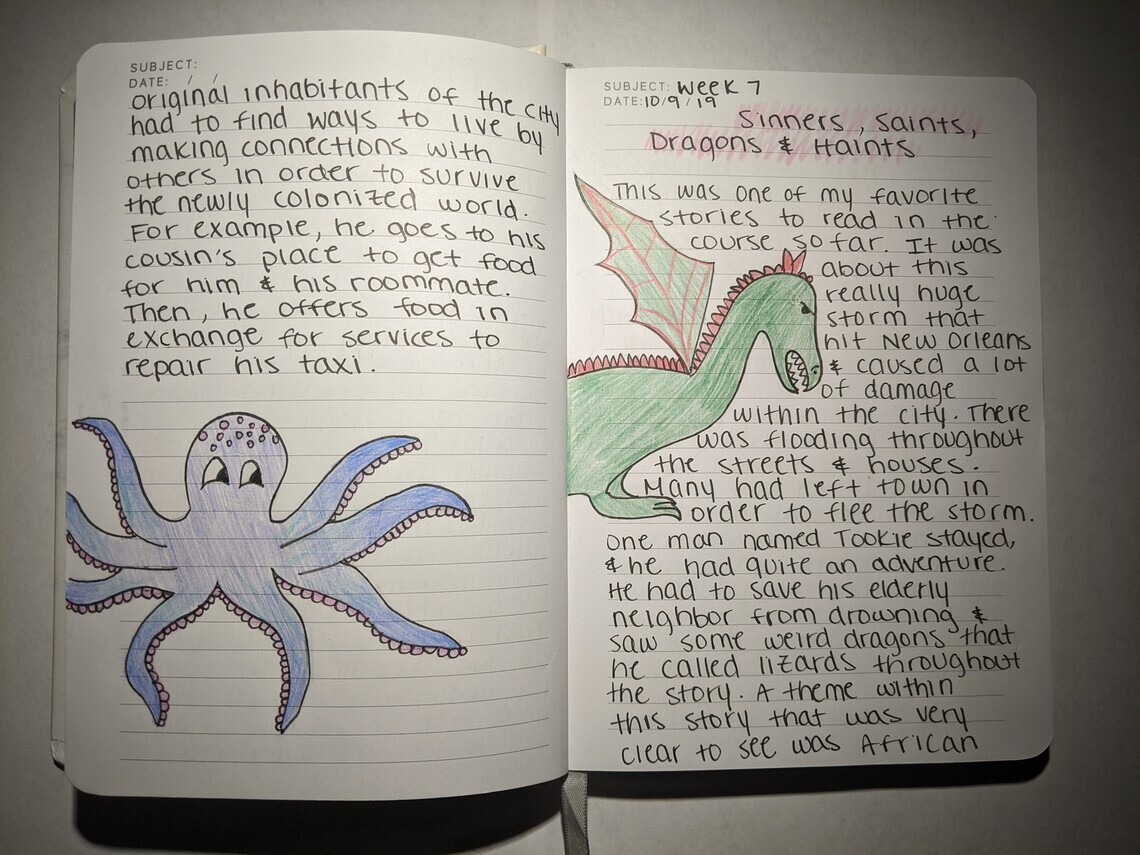 SUBJECT:
DATE: / /
original inhabitants of the city
had to find ways to live by
making connections with
others in order to survive
the newly colonized world.
For example, he goes to his
cousin's place to get food
for him & his roommate.
Then, he offers food in
exchange for services to
repair his taxi.
SUBJECT: Week 7
DATE: 10/9/19
Sinners, Saints,
Dragons & Haints
This was one of my favorite
stories to read in the
course so far. It was
about this
really huge
storm that
hit New Orleans
& caused a lot
of damage
within the city. There
was flooding throughout
the streets & houses.
Many had left town in
order to flee the storm.
One man named Tookie stayed,
& he had quite an adventure.
He had to save his elderly
neighbor from drowning &
saw some weird dragons that
he called lizards throughout
the story. A theme within
this story that was very
clear to see was African